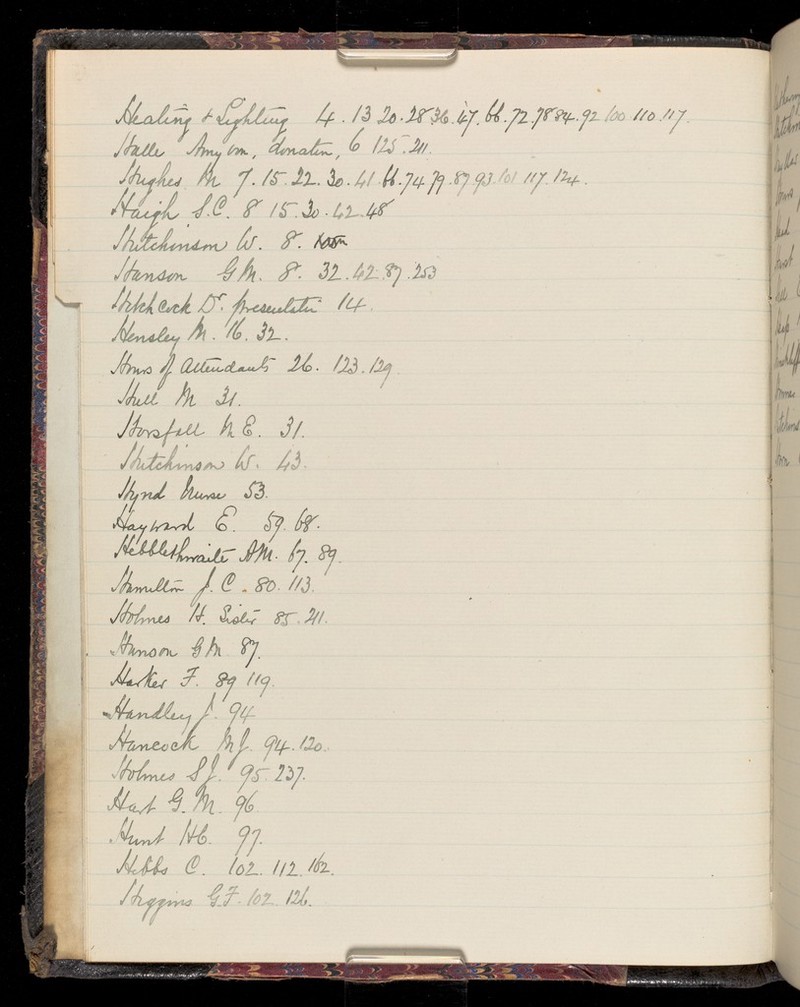 Heating & Lighting 4. 13 20. 28 36. 47. 66. 72. 78 84. 92 100 110 117.
Halle donation, 6 125. 211.
Hughes M 7. 15. 22. 30. 41 66. 74 79. 87 93. 101 117. 124.
Haigh S.C. 8 15. 30. 42. 48
Hutchinson W. 8.
Hanson G M. 8. 32. 42. 87. 253
Hitchcock Dr. presentation 14.
Hensley M. 16. 32.
Hours of Attendants 26. 123. 129.
Hull M 31.
Horsfall M E. 31.
Hutchinson W. 43.
Hynd Nurse 53.
Hayward E. 59. 68.
Hebblethwaite A M. 67. 89.
Hamilton J. C. 80. 113.
Holmes H. Sister 85. 211.
Hanson G M 87.
Harker F. 89 119.
Handley J. 94
Hancock M J. 94. 120.
Holmes S J. 95. 237.
Hart G. M. 96
Hunt H C. 97.
Hibbs C. 102. 112. 162.
Higgins G.F. 102. 126.